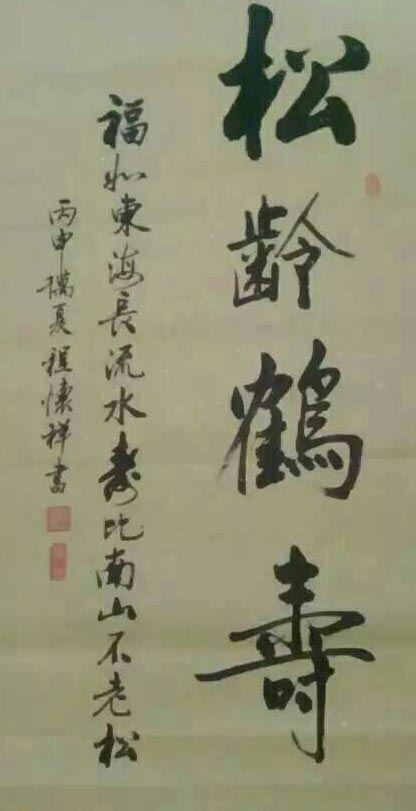 松齡鶴壽
福如東海長流水壽比南山不老松
丙申瑞夏程懷祥書